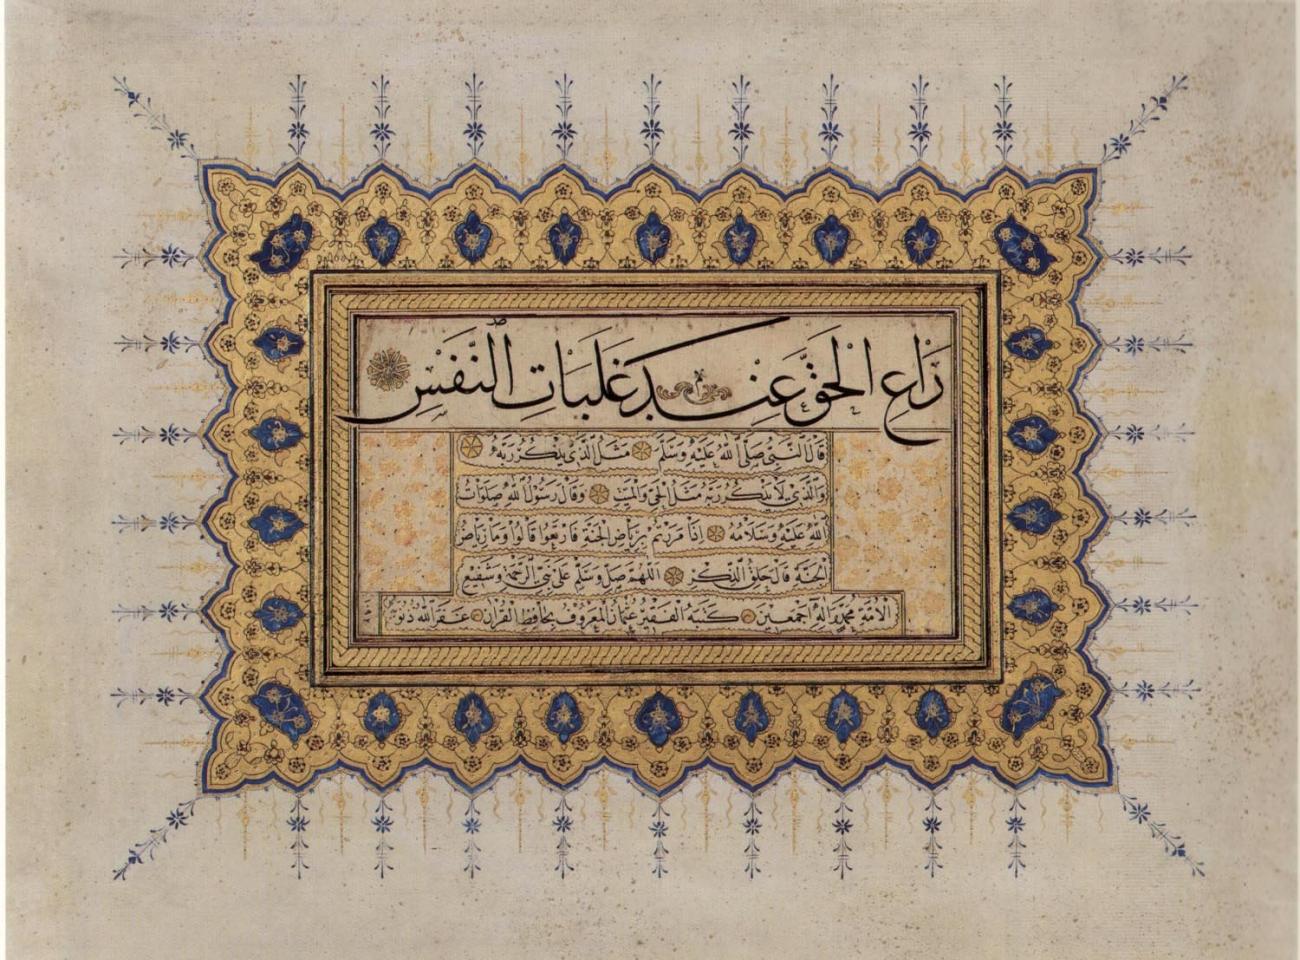 رَاعِ الْحَقَّ عِنْدَ غَلَبَاتِ النَّفْسِ
قَالَ النَّبِيُّ صَلَّى اللهُ عَلَيْهِ وَسَلَّمَ مَثَلُ الَّذِي يَذْكُرُ رَبَّهُ
وَالَّذِي لَا يَذْكُرُ رَبَّهُ مَثَلُ الْحَيِّ وَالْمَيِّتِ وَقَالَ رَسُولُ اللهِ صَلَوَاتُ
اللهِ عَلَيْهِ وَسَلَامُهُ إِذَا مَرَرْتُمْ بِرِيَاضِ الْجَنَّةِ فَارْتَعُوا قَالُوا وَمَا رِيَاضُ
الْجَنَّةِ قَالَ حِلَقُ الذِّكْرِ اَللّٰهُمَّ صَلِّ وَسَلِّمْ عَلَى نَبِيِّ الرَّحْمَةِ وَشَفِيعِ
الْاُمَّةِ مُحَمَّدٍ وَآلِهِ اَجْمَعِينَ كَتَبَهُ الْفَقِيرُ عُثْمَانُ الْمَعْرُوفُ بِحَافِظِ الْقُرْآنِ غَفَرَ اللهُ ذُنُوبَهُ